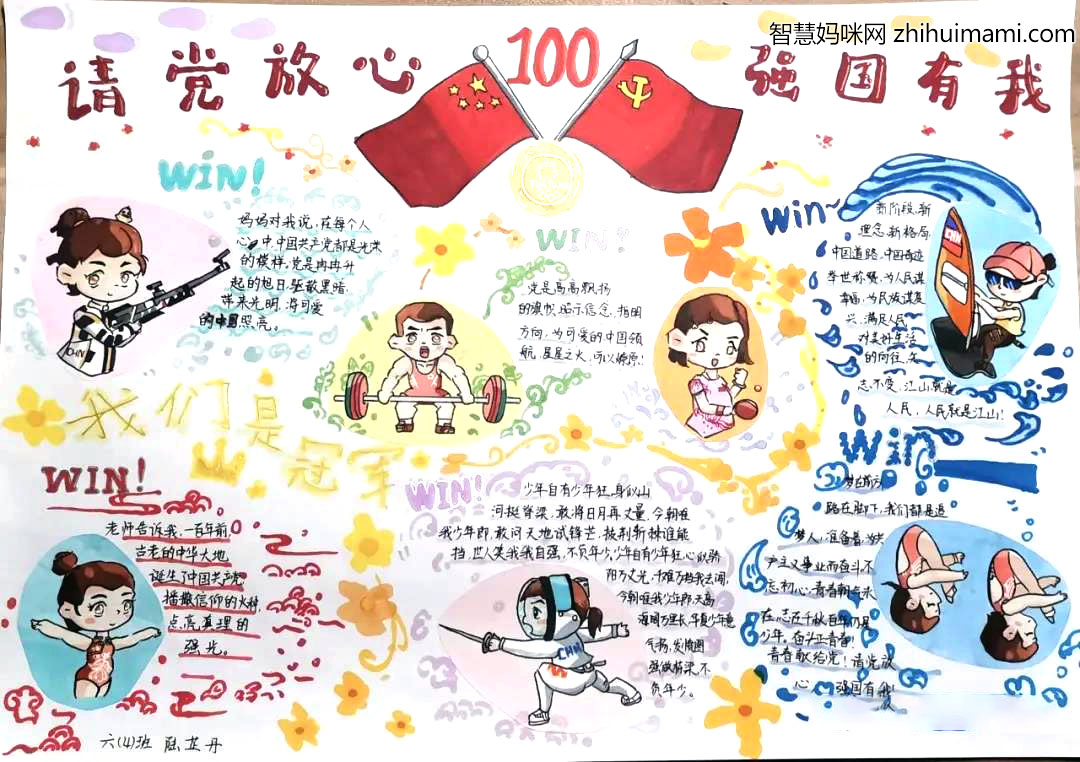 智慧妈咪网 zhihuimami.com
请党放心
100
强国有我
WIN!
妈妈对我说，在每个人
心中，中国共产党都是光荣
的模样。党是冉冉升
起的旭日，驱散黑暗，
带来光明，将可爱
的中国照亮。
CHN
WIN!
党是高高飘扬
的旗帜，昭示信念，指明
方向，为可爱的中国领
航，星星之火，可以燎原！
win~
新阶段，新
理念，新格局
中国道路，中国奇迹
举世称赞，为人民谋
幸福，为民族谋复
兴，满足人民
对美好生活
的向往，矢
志不变，江山就是
人民，人民就是江山！
CHN
我们是
冠军
WIN!
老师告诉我，一百年前，
古老的中华大地
诞生了中国共产党，
播撒信仰的火种，
点亮真理的
强光。
WIN!
少年自有少年狂，身似山
河挺脊梁，敢将日月再丈量，今朝唯
我少年郎，敢问天地试锋芒，披荆斩棘谁能
挡，世人笑我我自强，不负年少，少年自有少年狂，心似骄
阳万丈光，千难万挡我去闯，
今朝唯我少年郎，天高
海阔万里长，华夏少年意
气扬，发愤图
强做栋梁，不
负年少。
CHN
Win
梦在前方
路在脚下，我们都是追
梦人！准备着，为共
产主义事业而奋斗，不
忘初心，青春朝气永
在，志在千秋，百年仍是
少年，奋斗正青春！
青春献给党！请党放
心，强国有我！
六(4)班 陆芷丹